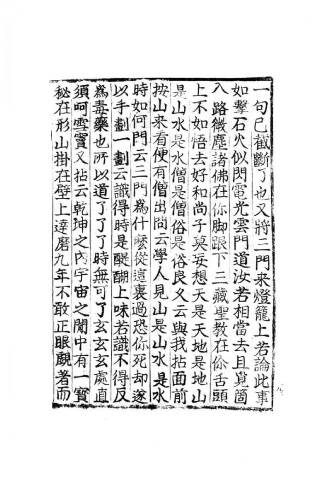 一句已截斷了也又將三門來燈籠上若論此事
如擊石火似閃電光雲門道汝若相當去且覓箇
入路微塵諸佛在你脚跟下三藏聖教在你舌頭
上不如悟去好和尚子莫妄想天是天地是地山
是山水是水僧是僧俗是俗良久云與我拈面前
按山來看便有僧出問云學人見山是山水是水
時如何門云三門爲什麽從這裏過恐你死却遂
以手劃一劃云識得時是醍醐上味若識不得反
爲毒藥也所以道了了了時無可了玄玄玄處直
須呵雪竇又拈云乾坤之內宇宙之閒中有一寶
秘在形山掛在壁上達磨九年不敢正眼覷著而